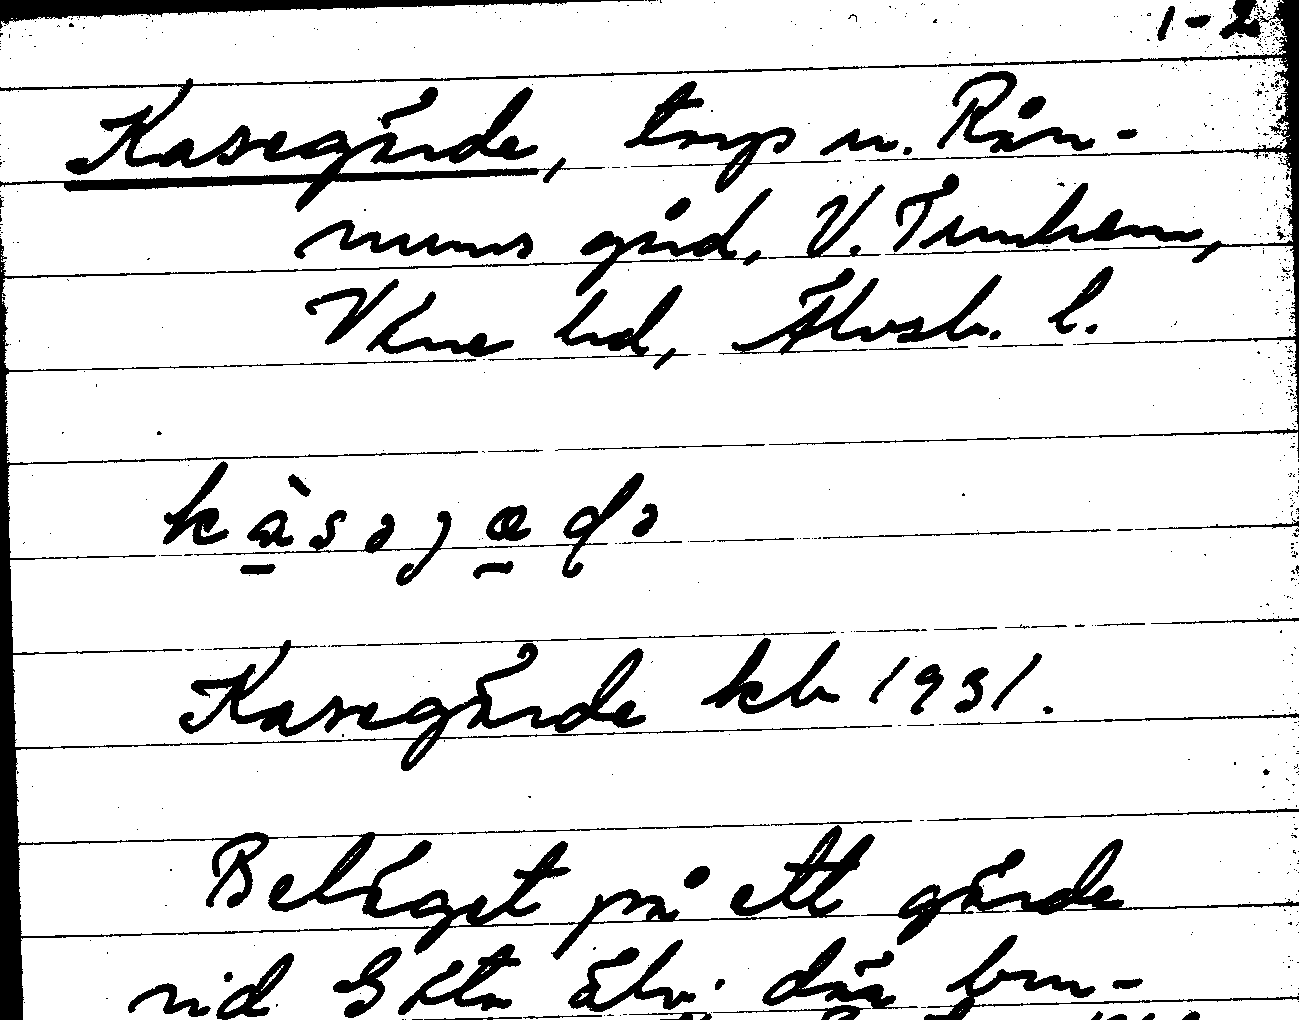 1-2
Kasegärde, torp u. Rån-
nums gård, V. Tunhem,
Väne hd, Älvsb. l.
Kasegärde kb 1931.
Beläget på ett gärde
vid Göta älv. där